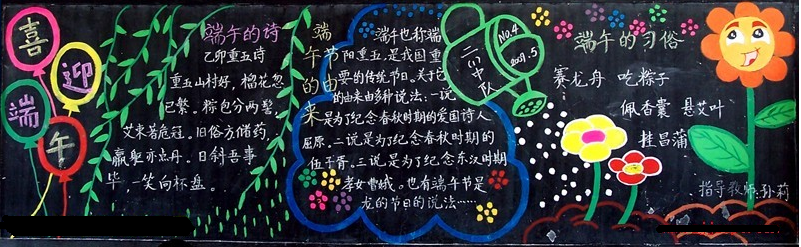 喜
迎
端
午
端午的诗
乙卯重五诗
重五山村好，榴花忽
已繁。粽包分两髻，
艾束著危冠。旧俗方储药，
羸躯亦点丹。日斜吾事
毕，一笑向杯盘。
端午节的由来
端午也称端
阳重五，是我国重
要的传统节日。关于它
的由来由多种说法：一说
是为了纪念春秋时期的爱国诗人
屈原。二说是为了纪念春秋时期的
伍子胥。三说是为了纪念东汉时期
孝女曹娥。也有端午节是
龙的节日的说法……
中队
No.4
2009.5
端午的习俗
赛龙舟 吃粽子
佩香囊 悬艾叶
挂菖蒲
指导教师：孙莉